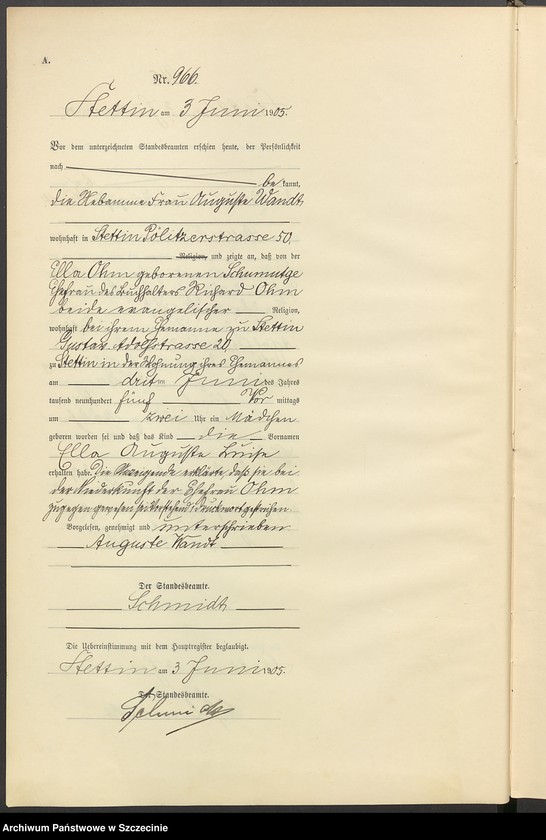 A.
Nr. 966.
Stettin am 3 Juni 1905.
Vor dem unterzeichneten Standesbeamten erschien heute, der Persönlichkeit
nach
be kannt,
die Hebamme Frau Auguste Wandt
wohnhaft in Stettin Pölitzerstrasse 50
Religion, und zeigte an, daß von der
Ella Ohm geborenen
Ehefrau des Buchhalters Richard Ohm
beide evangelischer Religion,
wohnhaft bei ihrem Ehemanne zu Stettin
Gustav-Adolfstrasse 20
zu Stettin in der Wohnung ihres Ehemannes
am dritten Juni des Jahres
tausend neunhundert fünf Vor mittags
um zwei Uhr ein Mädchen
geboren worden sei und daß das Kind die Vornamen
Ella Auguste Luise
erhalten habe. Die Anzeigende erklärte, daß sie bei
der Niederkunft der Ehefrau Ohm
zugegen gewesen sei. Vorstehend 1 Druckwort gestrichen
Vorgelesen, genehmigt und unterschrieben
Auguste Wandt
Der Standesbeamte.
Schmidt
Die Uebereinstimmung mit dem Hauptregister beglaubigt.
Stettin am 3 Juni 1905.
Der Standesbeamte.
Archiwum Państwowe w Szczecinie